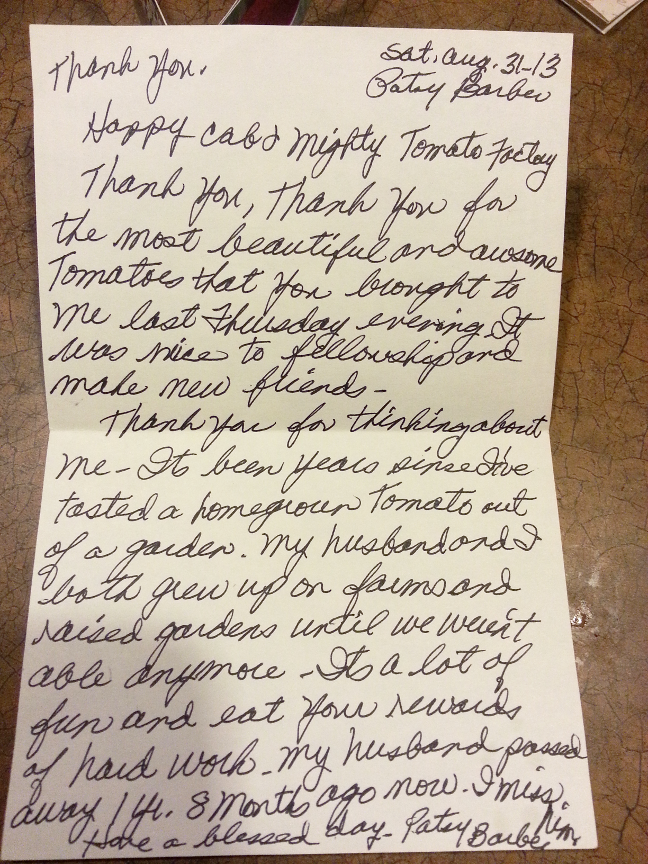 Thank You.
Sat. Aug. 31-13
Patsy Barber
Happy cabs Mighty Tomato Factory
Thank You, Thank You for
the most beautiful and awsome
Tomatoes that you brought to
me last Thursday evening. It
was nice to fellowship and
make new friends -
Thank you for thinking about
me - Its been years sinse I've
tasted a homegrown Tomato out
of a garden. My husband and I
both grew up on farms and
raised gardens until we weren't
able anymore - Its a lot of
fun and eat your rewards
of hard work - My husband passed
away 1 yr. 8 months ago now. I miss
him
Have a blessed day - Patsy Barber